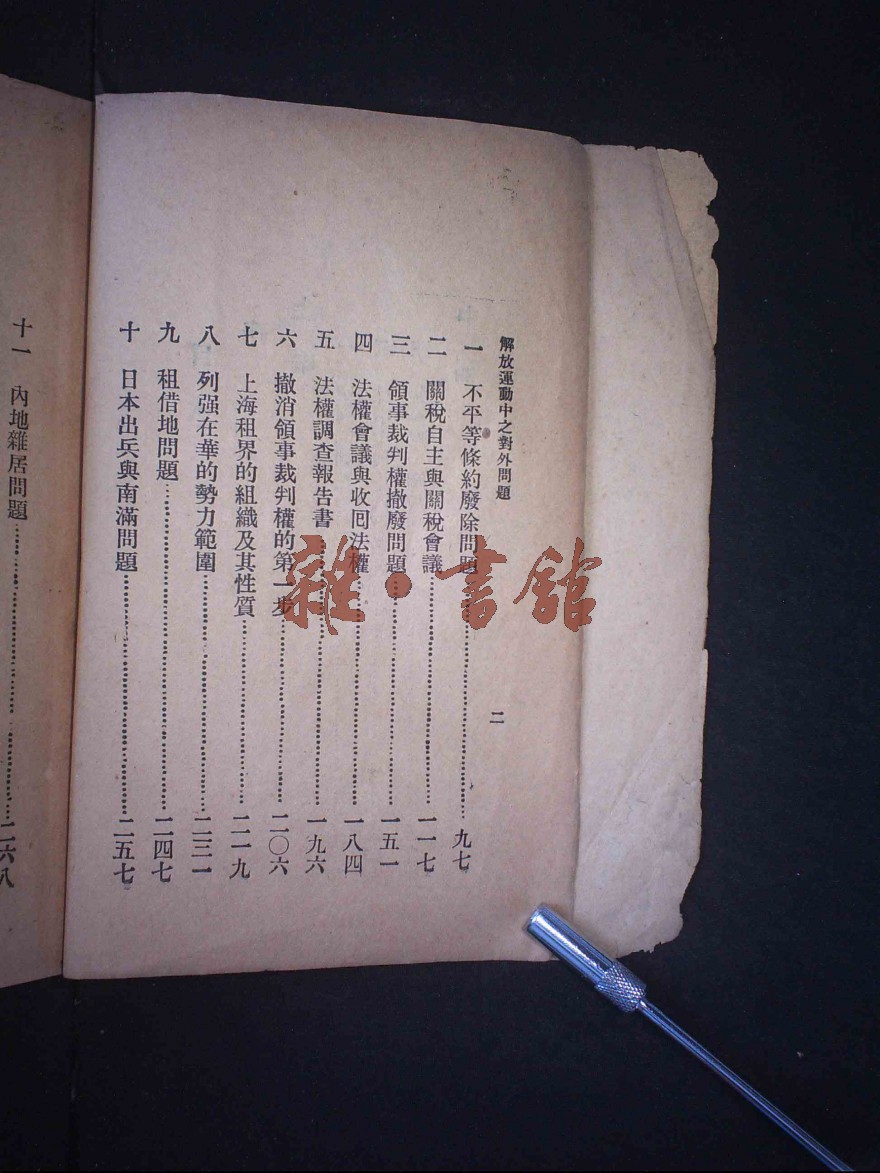 解放運動中之對外問題
二
一 不平等條約廢除問題……九七
二 關稅自主與關稅會議……一一七
三 領事裁判權撤廢問題……一五一
四 法權會議與收回法權……一八四
五 法權調查報告書……一九六
六 撤消領事裁判權的第一步……二〇六
七 上海租界的組織及其性質……二一九
八 列强在華的勢力範圍……二三一
九 租借地問題……二四七
十 日本出兵與南滿問題……二五七
十一 內地雜居問題……二六八
雜·書館